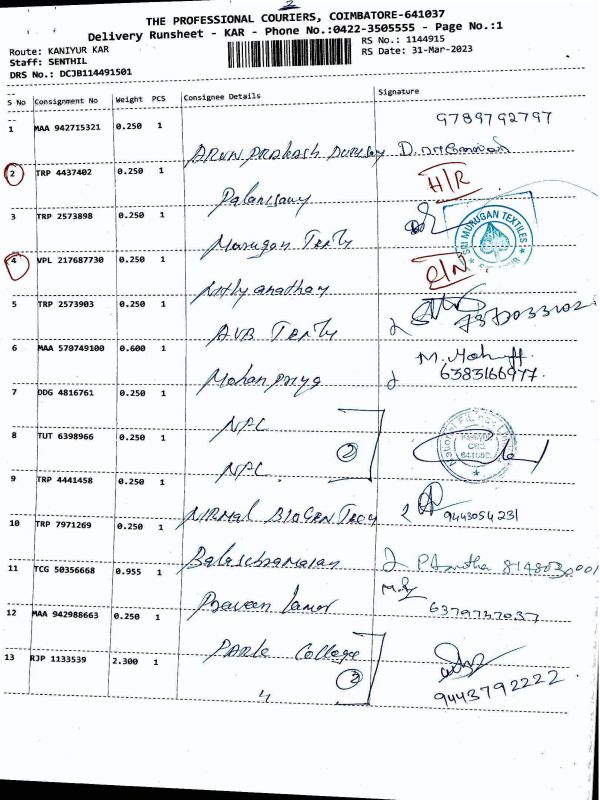 2
THE PROFESSIONAL COURIERS, COIMBATORE-641037
Delivery Runsheet - KAR - Phone No.:0422-3505555 - Page No.:1
Route: KANIYUR KAR
RS No.: 1144915
Staff: SENTHIL
RS Date: 31-Mar-2023
DRS No.: DCJB114491501
S No Consignment No Weight PCS Consignee Details Signature
1 MAA 942715321 0.250 1 9789792797
Arun Prakash D.
2 TRP 4437402 0.250 1 H/R
Palanisamy
3 TRP 2573898 0.250 1
Murugan Textly SRI MURUGAN TEXTILES
4 VPL 217687730 0.250 1
Nithyanathan
5 TRP 2573903 0.250 1 7373033102
AVB Textly
6 MAA 570749100 0.600 1 M.
Mohan priya 6383166977.
7 DDG 4816761 0.250 1
NPC
8 TUT 6398966 0.250 1 2
NPC
9 TRP 4441458 0.250 1
NIRMAL 9443054231
10 TRP 7971269 0.250 1
Balasubramanian 8148030001
11 TCG 50356668 0.955 1
Praveen kumar 6379737037
12 MAA 942988663 0.250 1
Park College
13 RJP 1133539 2.300 1 2
9443792222